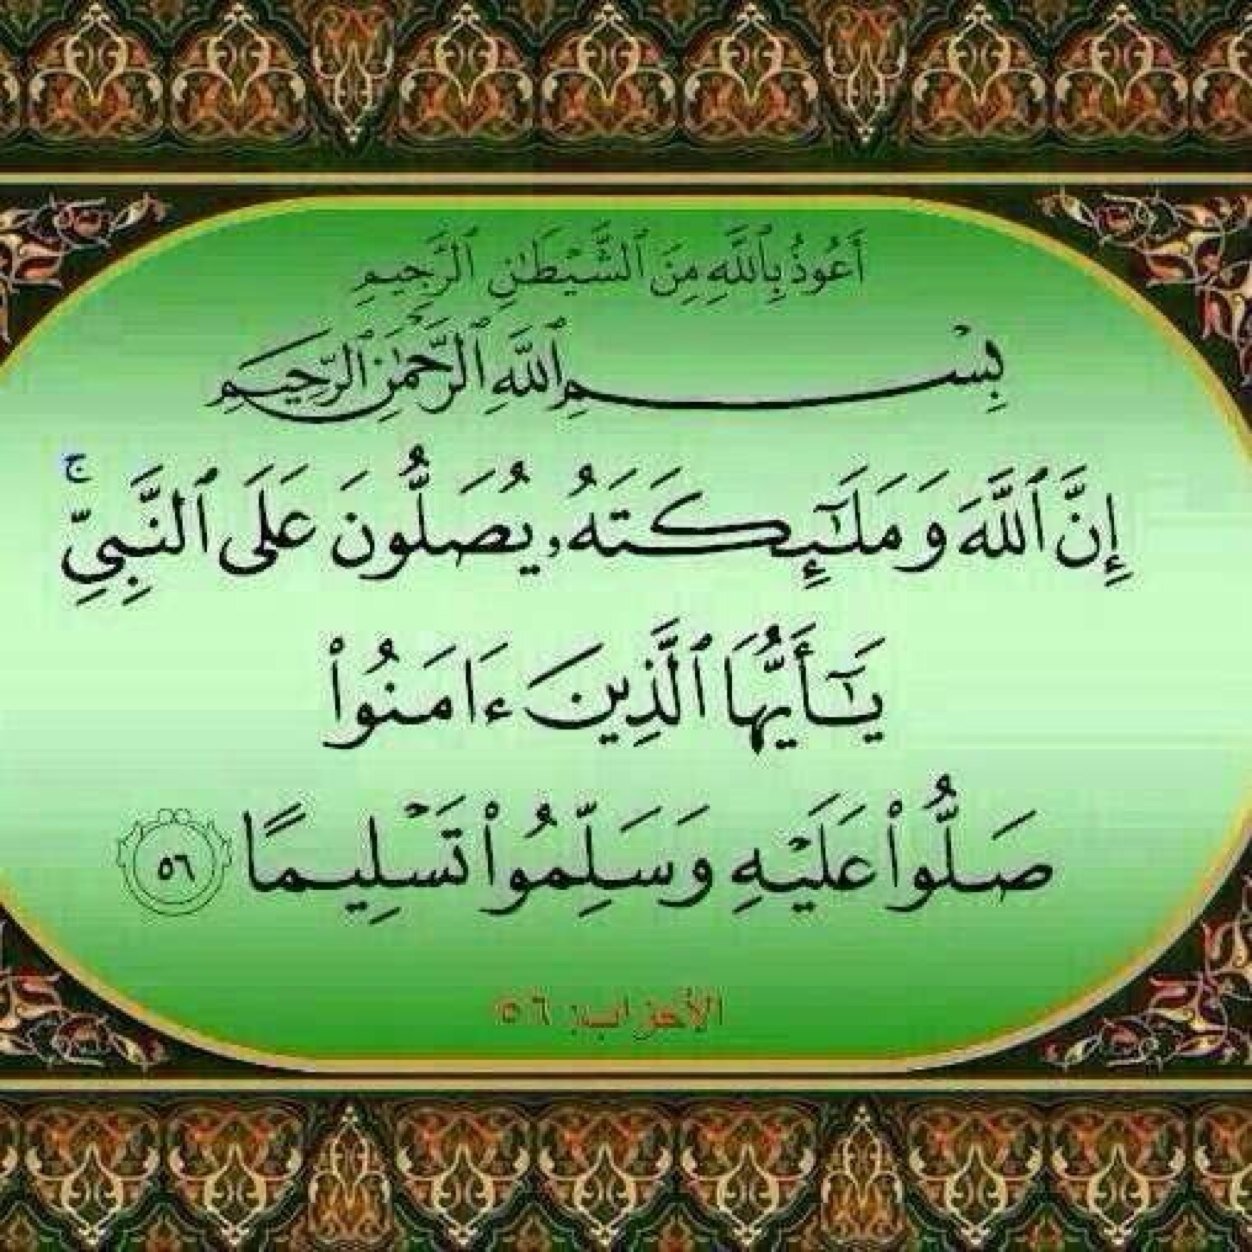 أَعُوذُ بِٱللَّهِ مِنَ ٱلشَّيْطَٰنِ ٱلرَّجِيمِ
بِسْمِ ٱللَّهِ ٱلرَّحْمَٰنِ ٱلرَّحِيمِ
إِنَّ ٱللَّهَ وَمَلَٰٓئِكَتَهُۥ يُصَلُّونَ عَلَى ٱلنَّبِىِّ ۚ
يَٰٓأَيُّهَا ٱلَّذِينَ ءَامَنُوا۟
صَلُّوا۟ عَلَيْهِ وَسَلِّمُوا۟ تَسْلِيمًا ٥٦
الأحزاب: ٥٦